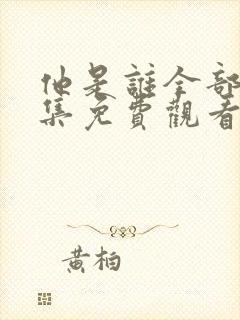 他是誰全部
集免費觀看
黃柏